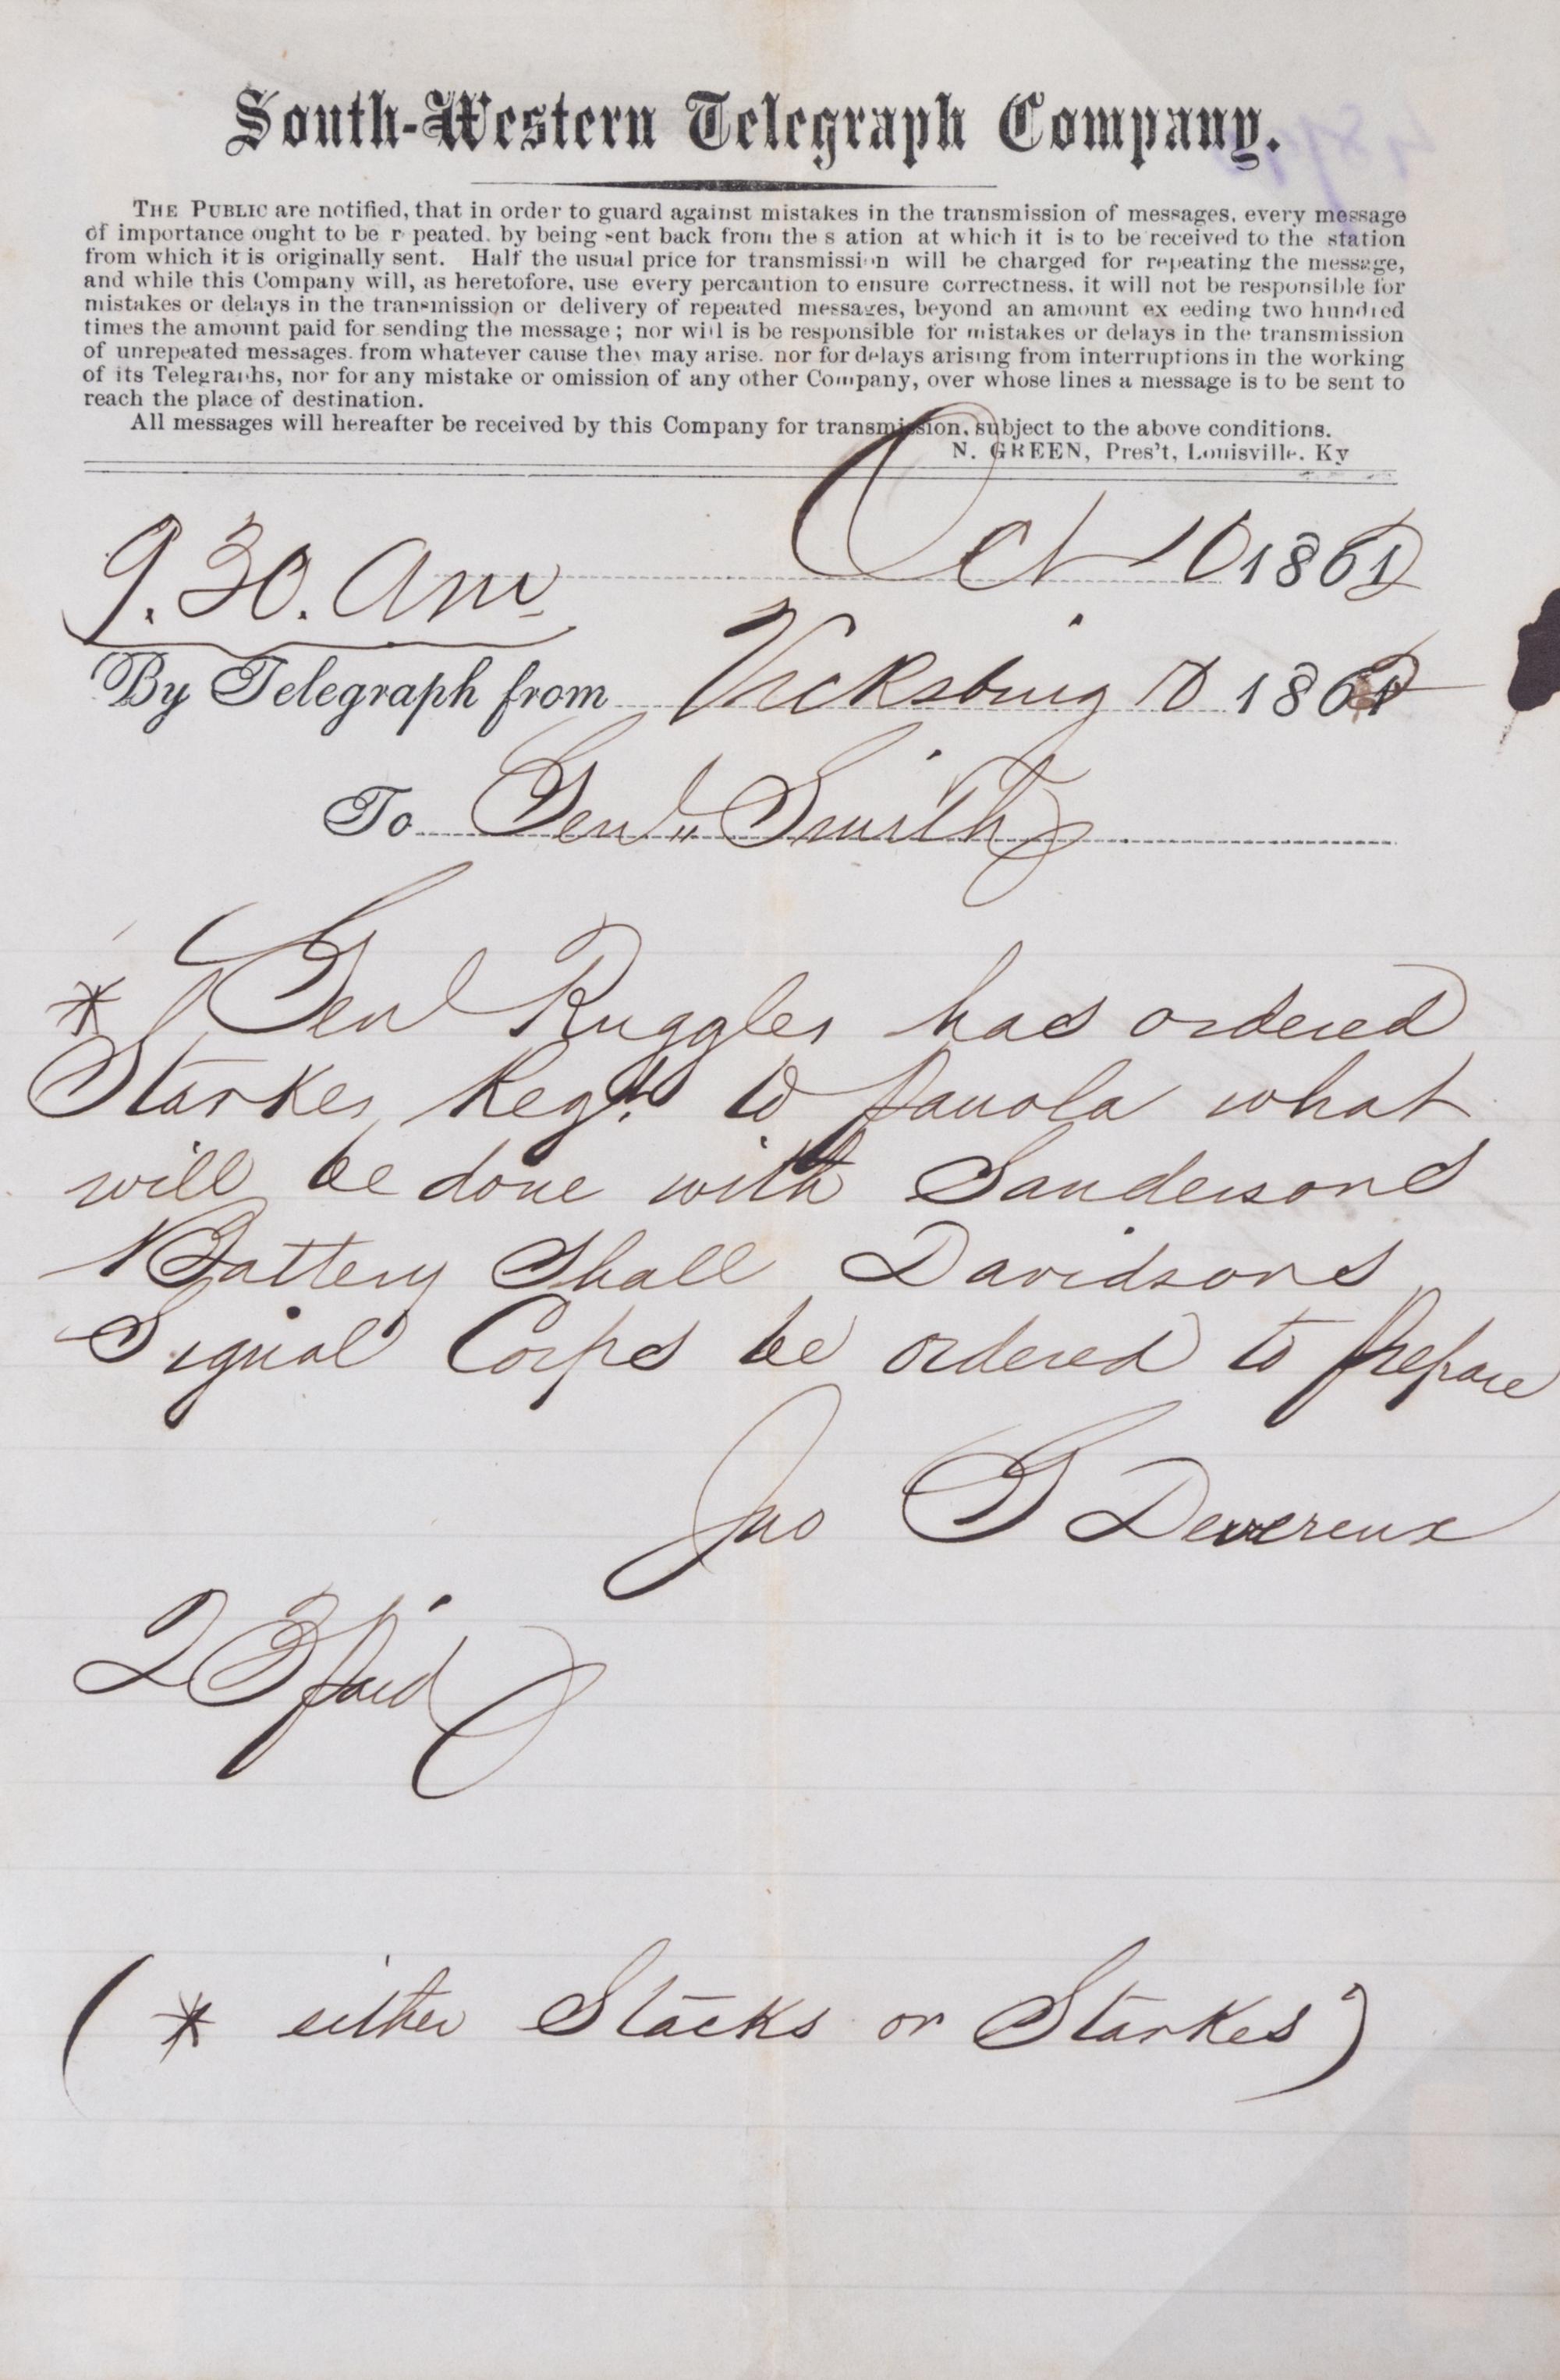 South-Western Telegraph Company.
THE PUBLIC are notified, that in order to guard against mistakes in the transmission of messages, every message
of importance ought to be r peated, by being sent back from the s ation at which it is to be received to the station
from which it is originally sent. Half the usual price for transmission will be charged for repeating the message,
and while this Company will, as heretofore, use every percaution to ensure correctness, it will not be responsible for
mistakes or delays in the transmission or delivery of repeated messages, beyond an amount ex eeding two hundred
times the amount paid for sending the message; nor will is be responsible for mistakes or delays in the transmission
of unrepeated messages, from whatever cause they may arise, nor for delays arising from interruptions in the working
of its Telegraphs, nor for any mistake or omission of any other Company, over whose lines a message is to be sent to
reach the place of destination.
All messages will hereafter be received by this Company for transmission, subject to the above conditions.
N. GREEN, Pres't, Louisville, Ky
9.30. am Oct 10 1862
By Telegraph from Vicksburg 10 1862
To Genl Smith
* Genl Ruggles has ordered
Starkes Regt to Panola what
will be done with Sandersons
Battery Shall Davidsons
Signal Corps be ordered to prepare
Jno G Devereux
23 Paid
(* either Stacks or Starkes)